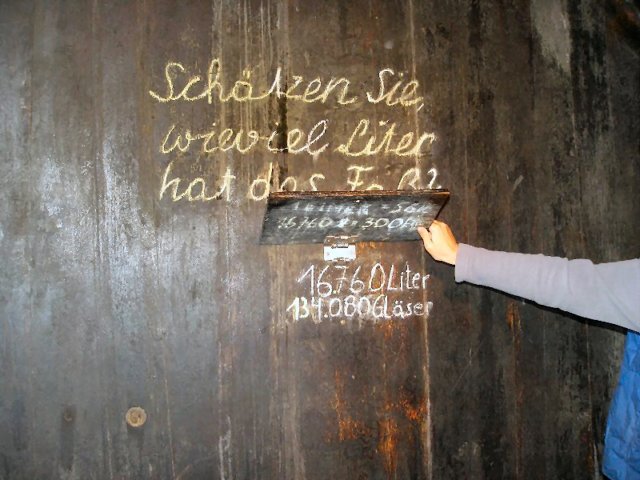 Schätzen Sie,
wieviel Liter
hat das Faß?
16.760 Liter
134.080 Gläser